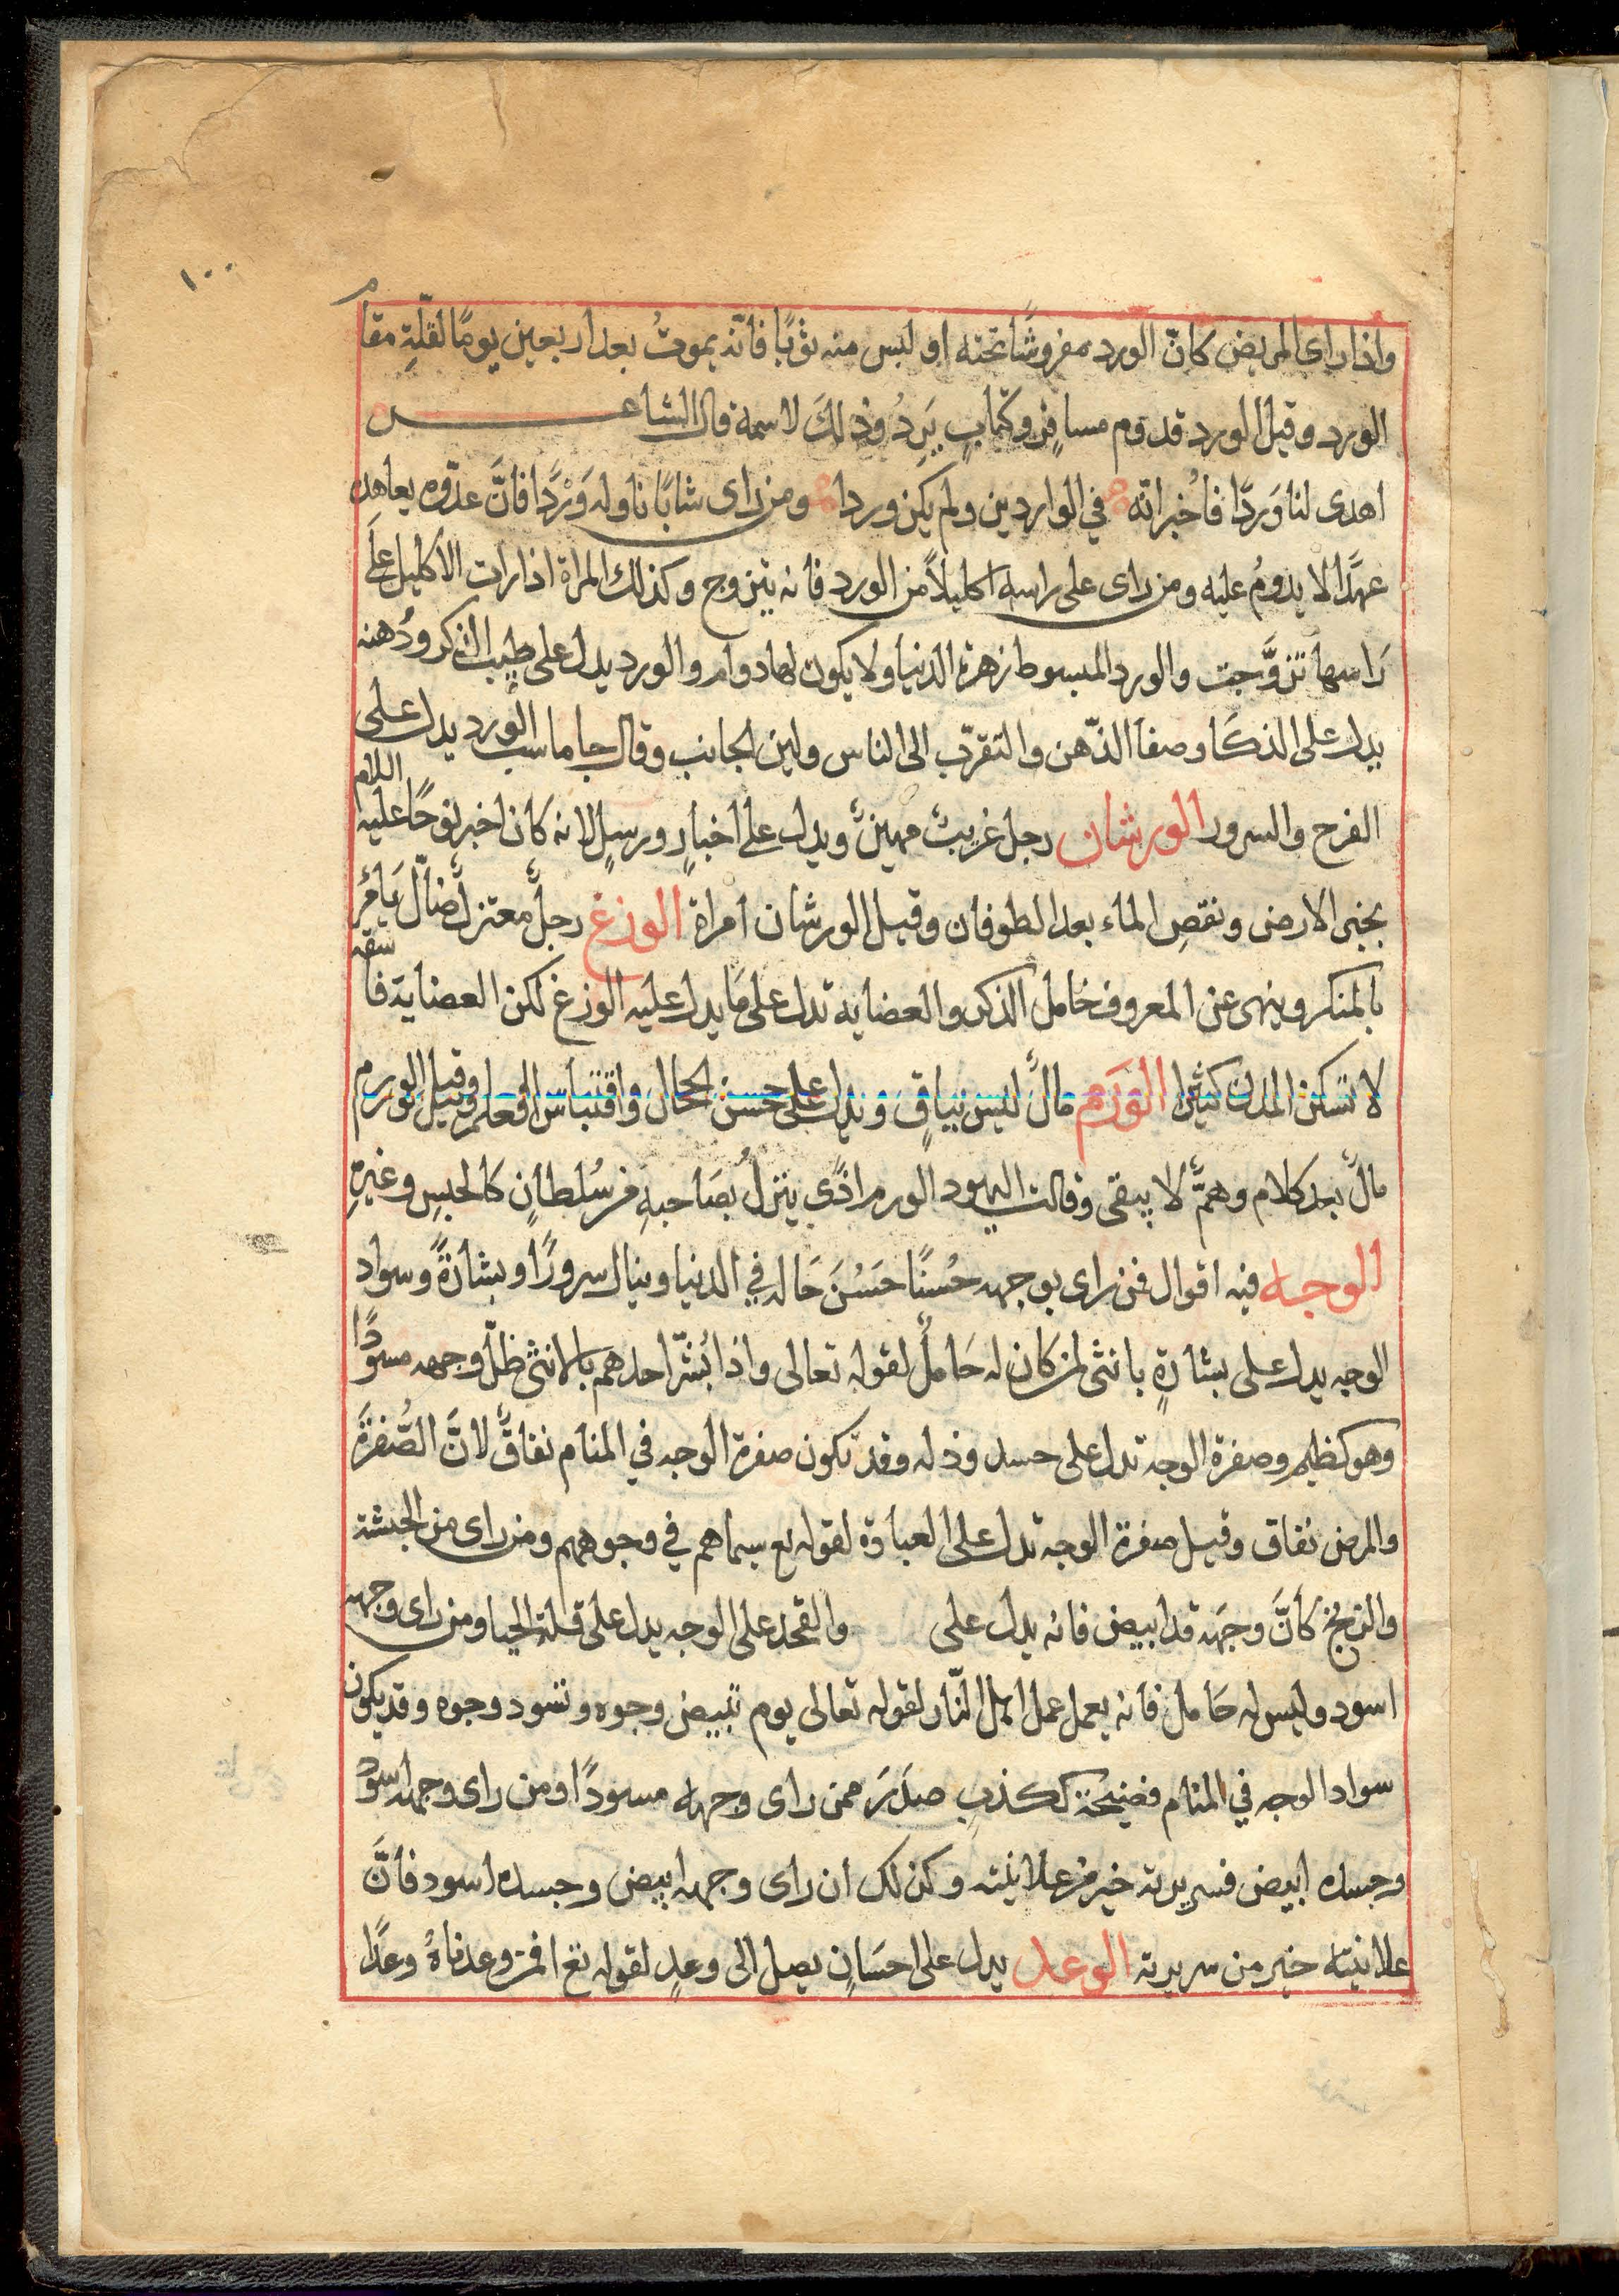 ١٠٠
واذا راى المريض كانّ الورد مفروشًا تحته او لبس منه ثوبًا فانّه يموتُ بعد اربعين يومًا لقلّةِ مقام
الورد وقيل الورد قدوم مسافرٍ وكتابٍ يَرِدُ وذلكَ لاسمه قال الشاعر
اهدى لنا وَردًا فاُخبر انّه في الواردين ولم يكن وردا ومن راى شابًا ناوله وَرْدًا فانَّ عدّوه يعاهده
عهدًا لا يدومُ عليه ومن راى على راسه اكليلاً من الورد فانه يتزوج وكذلك المراة اذا رات الاكليل على
رَاسها تزوَّجت والورد المبسوط زهرة الدنيا ولا يكون لها دوام والورد يدل على طيب الذكر ودُهنه
يدل على الذكَا وصفا الذّهن والتقرّب الى الناس ولين الجانب وقال جاماسب الورد يدل على
الفرح والسرور الورشان رجل غريبٌ مهينٌ ويدل على اخبارٍ ورسلٍ لانه كَان اخبر نوحًا عليه السلام
بجنى الارض ونقصِ الماء بعد الطوفان وقيل الورشان امراة الوزغ رجلٌ معتزلٌ ضالّ يَامُر
بالمنكر وينهى عن المعروف خامل الذكر والعضاية تدل على مَا يدل عليه الوزغ لكن العضاية فاسقة
لا تسكن المدن كثيرا الورَم مالٌ ليس بباقٍ ويدل على حسن الحال واقتباس العلم وقيل الورم
مالٌ بعد كلام وهمٌّ لا يبقى وقالت اليهود الورم اذًى ينزلُ بصَاحبهِ من سُلطانٍ كالحبسِ وغيرهِ
الوجه فيه اقوال فمن راى بوجهه حُسنًا حَسُنَ حَاله في الدنيا وينال سرورًا وبشارةً وسواد
الوجه يدل على بشارةٍ بانثى لمن كان له حَاملٌ لقوله تعالى واذا بُشّر احدهم بالانثى ظلّ وجهه مسودًا
وهو كظيم وصفرة الوجه تدل على حسد وذله وقد تكون صفرة الوجه في المنام نفاقٌ لانَّ الصُّفرَة
والمرض نفاق وقيل صفرة الوجه تدل على العبادة لقوله تع سيماهم في وجوههم ومن راى من الحبشة
والزنج كانَّ وجهَه قد ابيض فانه يدل على والقحد على الوجه يدل على قلة الحيا ومن راى وجهه
اسود وليس له حَامل فانه يعمل عمل اهل النّار لقوله تعالى يوم تبيض وجوه وتسود وجوه وقد يكون
سواد الوجه في المنام فضيحة لكذبٍ صدَرَ ممن راى وجهه مسودًا ومن راى وجهه اسود
وجسده ابيض فسريرته خير من علانيته وكذلك ان راى وجهه ابيض وجسده اسود فانَّ
علانيته خير من سريرته الوعد يدل على احسَانٍ يصل الى وعدٍ لقوله تع افمن وعدناهُ وعدًا